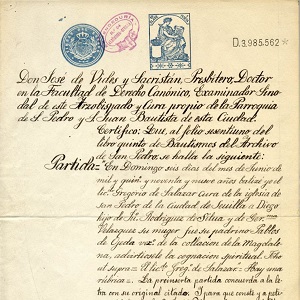 D.3.985.562
Don José de Vides y Sacristan, Presbitero, Doctor
en la Facultad de Derecho Canónico, Examinador Sino
dal de este Arzobispado y Cura propio de la Parroquia
de S. Pedro y S. Juan Bautista de esta Ciudad.
Certifico: Que, al folio sesentiuno del
libro quinto de Bautismos del Archivo
de San Pedro, se halla la siguiente:
Partida = "En Domingo seis dias del mes de Junio de
mil y quin.s y noventa y nueve años batisé yo el
lic. Gregorio de Salazar Cura de la iglesia de
san Pedro de la Ciudad de Seuilla a Diego
hijo de Ju. Rodrigues de Silua y de Ger.
Velazquez su muger fue su padrino Pablo
de Ojeda vz.º de la collacion de la Magdale
na, advirtiósele la cognacion spiritual. Fho
ut supra = El lic.º Greg. de Salazar = Hay una
rúbrica.
La preinserta partida concuerda a la le
tra con su original citado. Y para que conste y a peti